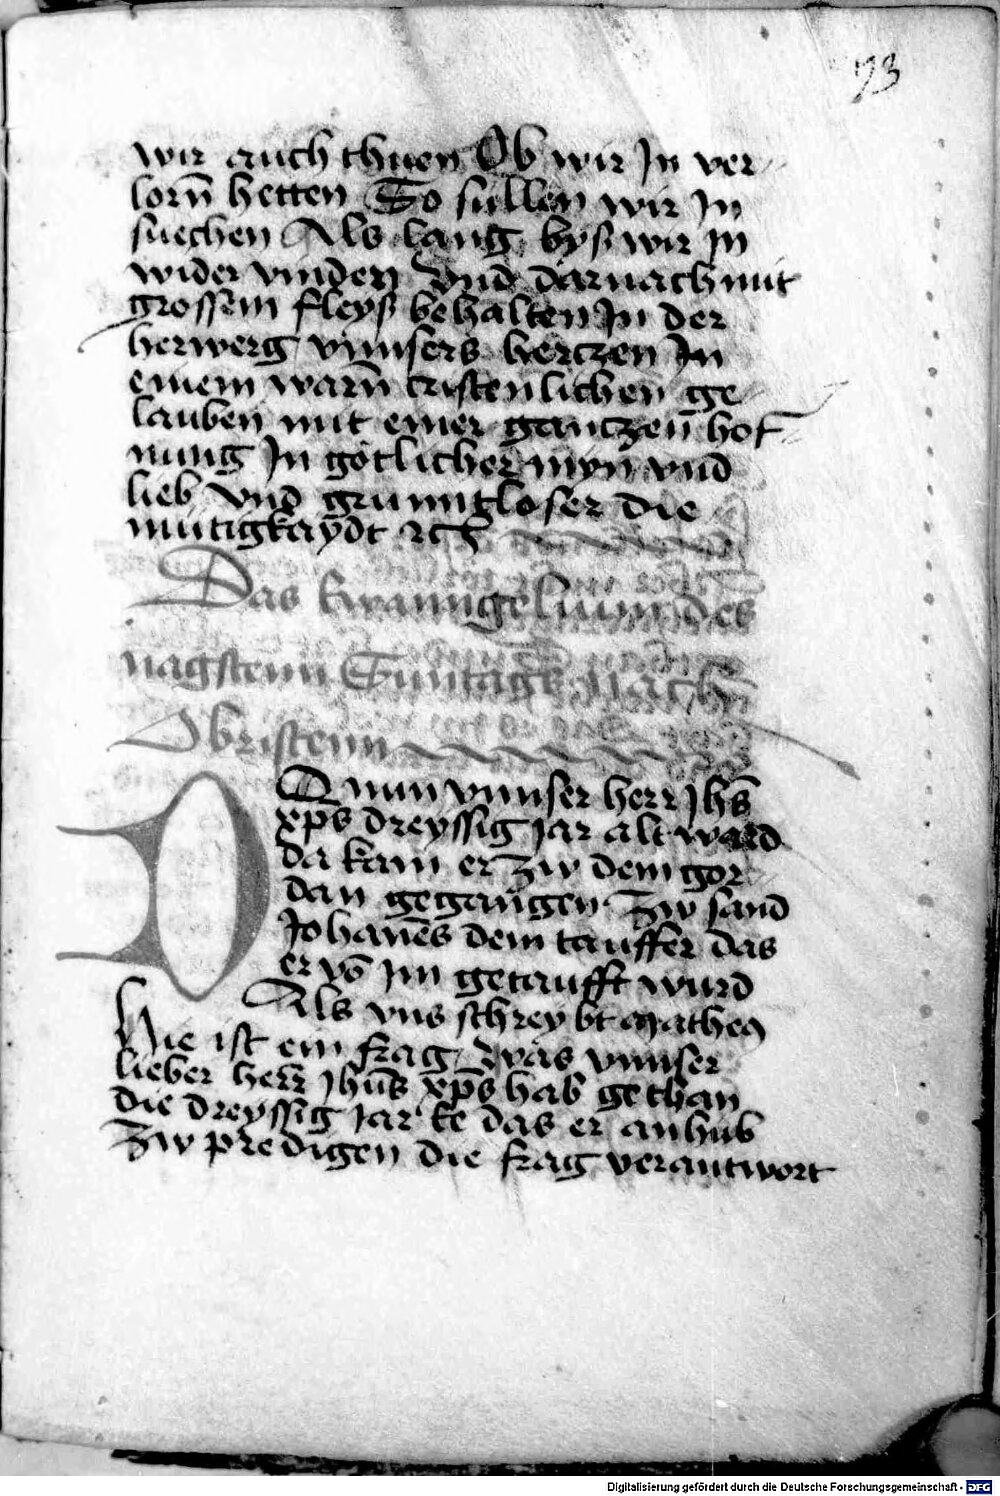 73
wir auch thuen Ob wir In ver
lorn̄ hetten So süllen wir In
suechen Als lang byß wir In
wider vinden Vnd darnach mit
grossem fleyß behalten In der
herwerg vnnsers hertzen In
einem warn̄ cristenlichen ge
lauben mit einer gantzen̄ hof
nung In götlicher myn vnd
lieb Vnd grunntloser die
mutigkaydt ꝛc
Das Ewanngelium des
nagstenn Suntags nach
Obristenn
DO nun vnnser herr Jhs̄
xp̄s dreyssig iar alt ward
da kam er zw dem gor
dan gegangen zw sand
Johan̄es dem tauffer das
er vō im getaufft wurd
Als vns schreybt matheus
Hie ist ein frag Was vnnser
lieber herr̄ Jhūs xp̄s hab gethan
die dreyssig iar ee das er anhub
zw predigen die frag verantwort
Digitalisierung gefördert durch die Deutsche Forschungsgemeinschaft - DFG